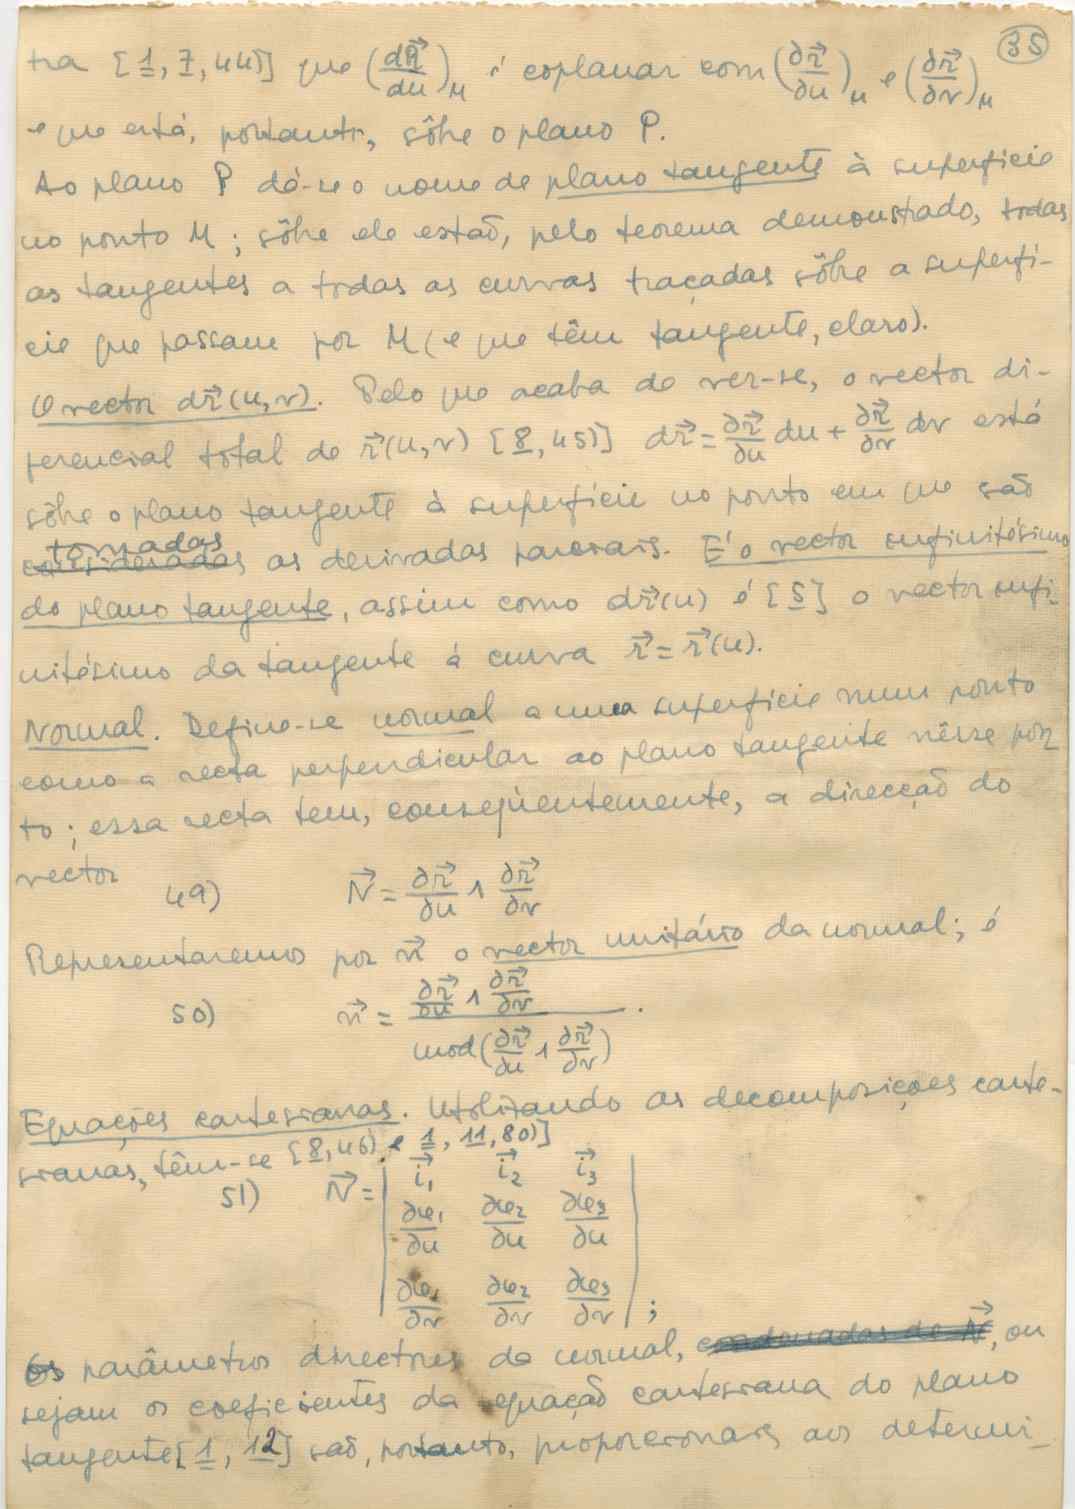 35
tra [1, 7, 44)] que (dr⃗/du)_M é coplanar com (∂r⃗/∂u)_M e (∂r⃗/∂v)_M
e que está, portanto, sôbre o plano P.
Ao plano P dá-se o nome de plano tangente à superfície
no ponto M; sôbre ele estão, pelo teorema demonstrado, todas
as tangentes a todas as curvas traçadas sôbre a superfí-
cie que passam por M (e que têm tangente, claro).
O vector dr⃗(u,v). Pelo que acaba de ver-se, o vector di-
ferencial total de r⃗(u,v) [8, 45)] dr⃗ = ∂r⃗/∂u du + ∂r⃗/∂v dv está
sôbre o plano tangente à superfície no ponto em que são
tomadas
consideradas as derivadas parciais. É o vector infinitésimo
do plano tangente, assim como dr⃗(u) é [5] o vector infi-
nitésimo da tangente à curva r⃗ = r⃗(u).
Normal. Define-se normal a uma superfície num ponto
como a recta perpendicular ao plano tangente nêsse pon
to; essa recta tem, conseqüentemente, a direcção do
vector
49) N⃗ = ∂r⃗/∂u ∧ ∂r⃗/∂v
Representaremos por n⃗ o vector unitário da normal; é
50) n⃗ = (∂r⃗/∂u ∧ ∂r⃗/∂v) / mod(∂r⃗/∂u ∧ ∂r⃗/∂v).
Equações cartesianas. Utilizando as decomposições carte-
sianas, têm-se [8, 46) e 1, 11, 80)]
51) N⃗ = | i⃗₁ i⃗₂ i⃗₃
∂x₁/∂u ∂x₂/∂u ∂x₃/∂u
∂x₁/∂v ∂x₂/∂v ∂x₃/∂v | ;
Os parâmetros directores da normal, coordenadas de N⃗, ou
sejam os coeficientes da equação cartesiana do plano
tangente [1, 12] são, portanto, proporcionais aos determi-